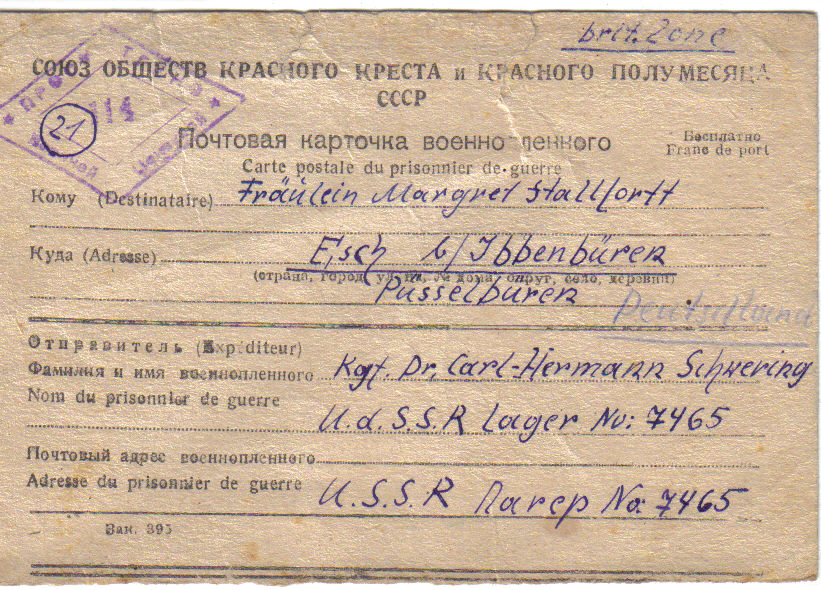 brit. Zone
СОЮЗ ОБЩЕСТВ КРАСНОГО КРЕСТА и КРАСНОГО ПОЛУМЕСЯЦА
СССР
14
21
Почтовая карточка военнопленного
Бесплатно
Franc de port
Carte postale du prisonnier de guerre
Кому (Destinataire) Fräulein Margret Stallfortt
Куда (Adresse) Esch b/Ibbenbüren
(страна, город, улица, № дома, округ, село, деревня)
Püsselbüren
Deutschland
Отправитель (Expéditeur)
Фамилия и имя военнопленного Kgf. Dr. Carl-Hermann Schwering
Nom du prisonnier de guerre
U.d.S.S.R Lager No: 7465
Почтовый адрес военнопленного
Adresse du prisonnier de guerre U.S.S.R Лагер No: 7465
Зак. 395